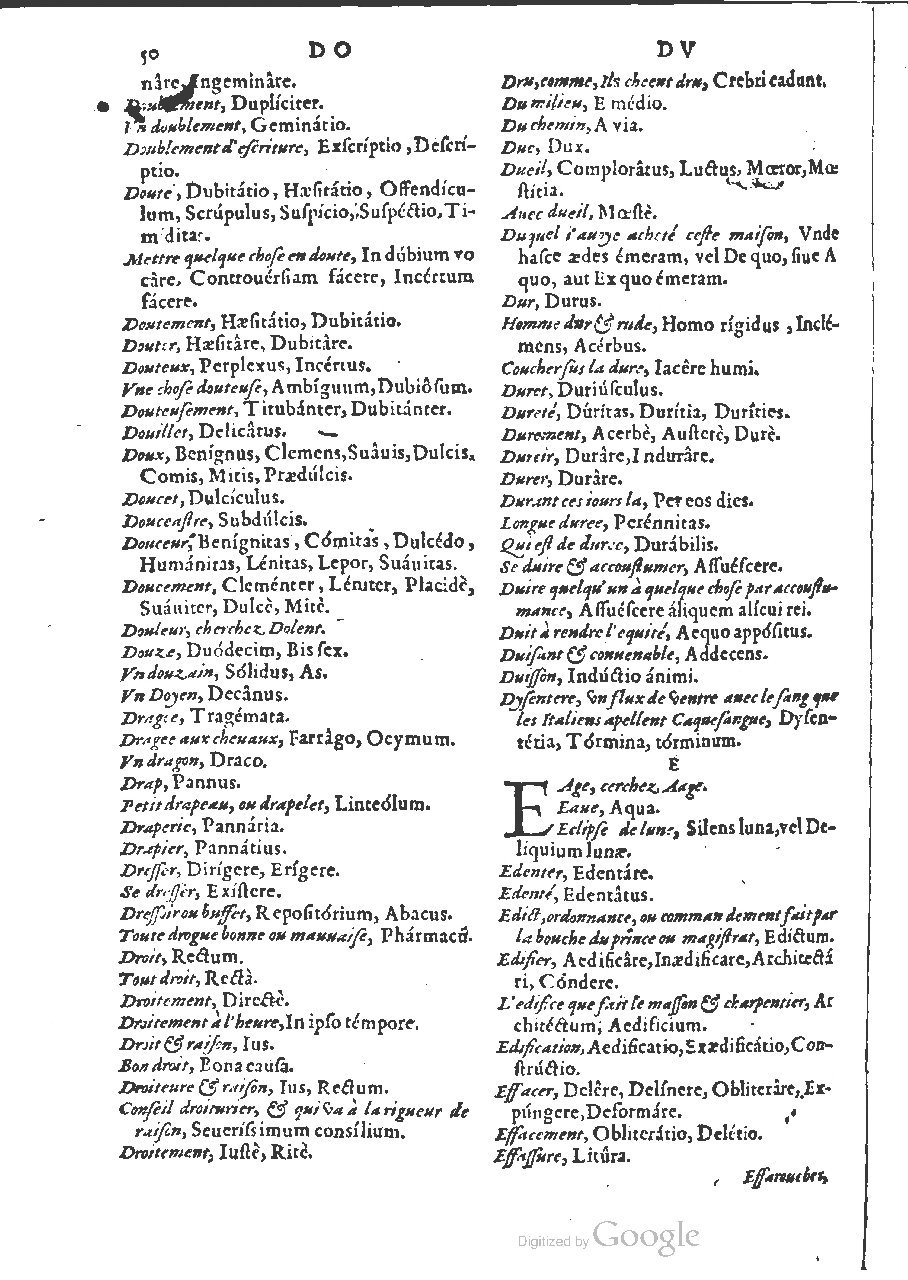 50 DO DV
nâre, Ingeminâre.
Doublement, Duplíciter.
Vn doublement, Geminátio.
Doublement d'eſcriture, Exſcríptio, Deſcrí-
ptio.
Doute, Dubitátio, Hæſitátio, Offendícu-
lum, Scrúpulus, Suſpício, Suſpéctio, Ti-
miditas.
Mettre quelque choſe en doute, In dúbium vo
câre, Controuérſiam fácere, Incértum
fácere.
Doutement, Hæſitátio, Dubitátio.
Douter, Hæſitâre, Dubitâre.
Douteux, Perplexus, Incértus.
Vne choſe douteuſe, Ambíguum, Dubiôſum.
Douteuſement, Titubánter, Dubitánter.
Douillet, Delicâtus.
Doux, Benígnus, Clemens, Suâuis, Dulcis,
Comis, Mitis, Prædúlcis.
Doucet, Dulcículus.
Douceaſtre, Subdúlcis.
Douceur, Benígnitas, Cómitas, Dulcédo,
Humánitas, Lénitas, Lepor, Suáuitas.
Doucement, Cleménter, Léniter, Placidè,
Suáuiter, Dulcè, Mitè.
Douleur, cherchez Dolent.
Douze, Duódecim, Bis ſex.
Vn douzain, Sólidus, As.
Vn Doyen, Decânus.
Dragee, Tragémata.
Dragee aux cheuaux, Farrâgo, Ocymum.
Vn dragon, Draco.
Drap, Pannus.
Petit drapeau, ou drapelet, Linteólum.
Draperie, Pannária.
Drapier, Pannátius.
Dreſſer, Dirígere, Erígere.
Se dreſſer, Exíſtere.
Dreſſoir ou buffet, Repoſitórium, Abacus.
Toute drogue bonne ou mauuaiſe, Phármacũ.
Droit, Rectum.
Tout droit, Rectà.
Droitement, Directè.
Droitement à l'heure, In ipſo témpore.
Droit & raiſon, Ius.
Bon droit, Bona cauſa.
Droiteure & raiſon, Ius, Rectum.
Conſeil droiturier, & qui va à la rigueur de
raiſon, Seueriſsimum conſílium.
Droitement, Iuſtè, Ritè.
Dru, comme, Ils cheent dru, Crebri cadunt.
Du milieu, E médio.
Du chemin, A via.
Duc, Dux.
Dueil, Complorâtus, Luctus, Mœror, Mœ
ſtitia.
Auec dueil, Mœſtè.
Duquel i'auoye acheté ceſte maiſon, Vnde
haſce ædes émeram, vel De quo, ſiue A
quo, aut Ex quo émeram.
Dur, Durus.
Homme dur & rude, Homo rígidus, Inclé-
mens, Acérbus.
Coucher ſus la dure, Iacêre humi.
Duret, Duriúſculus.
Dureté, Dúritas, Durítia, Duríties.
Durement, Acerbè, Auſterè, Durè.
Durcir, Durâre, Indurâre.
Durer, Durâre.
Durant ces iours la, Per eos dies.
Longue duree, Perénnitas.
Qui eſt de duree, Durábilis.
Se duire & accouſtumer, Aſſuéſcere.
Duire quelqu'un à quelque choſe par accouſtu-
mance, Aſſuéſcere áliquem alícui rei.
Duit à rendre l'equité, Aequo appóſitus.
Duiſant & conuenable, Addecens.
Duiſſon, Indúctio ánimi.
Dyſentere, vn flux de ventre auec le ſang que
les Italiens apellent Caqueſangue, Dyſen-
téria, Tórmina, tórminum.
E
EAge, cerchez Aage.
Eaue, Aqua.
Eclipſe de lune, Silens luna, vel De-
liquium lunæ.
Edenter, Edentáre.
Edenté, Edentâtus.
Edict, ordonnance, ou commandement fait par
la bouche du prince ou magiſtrat, Edíctum.
Edifier, Aedificâre, Inædificare, Architectá
ri, Cóndere.
L'edifice que fait le maſſon & charpentier, Ar
chitéctum, Aedificium.
Edification, Aedificatio, Exædificátio, Con-
ſtrúctio.
Effacer, Delêre, Delínere, Obliterâre, Ex-
púngere, Deformáre.
Effacement, Obliterátio, Delétio.
Effaſſure, Litûra.
Effaroucher,
Digitized by Google